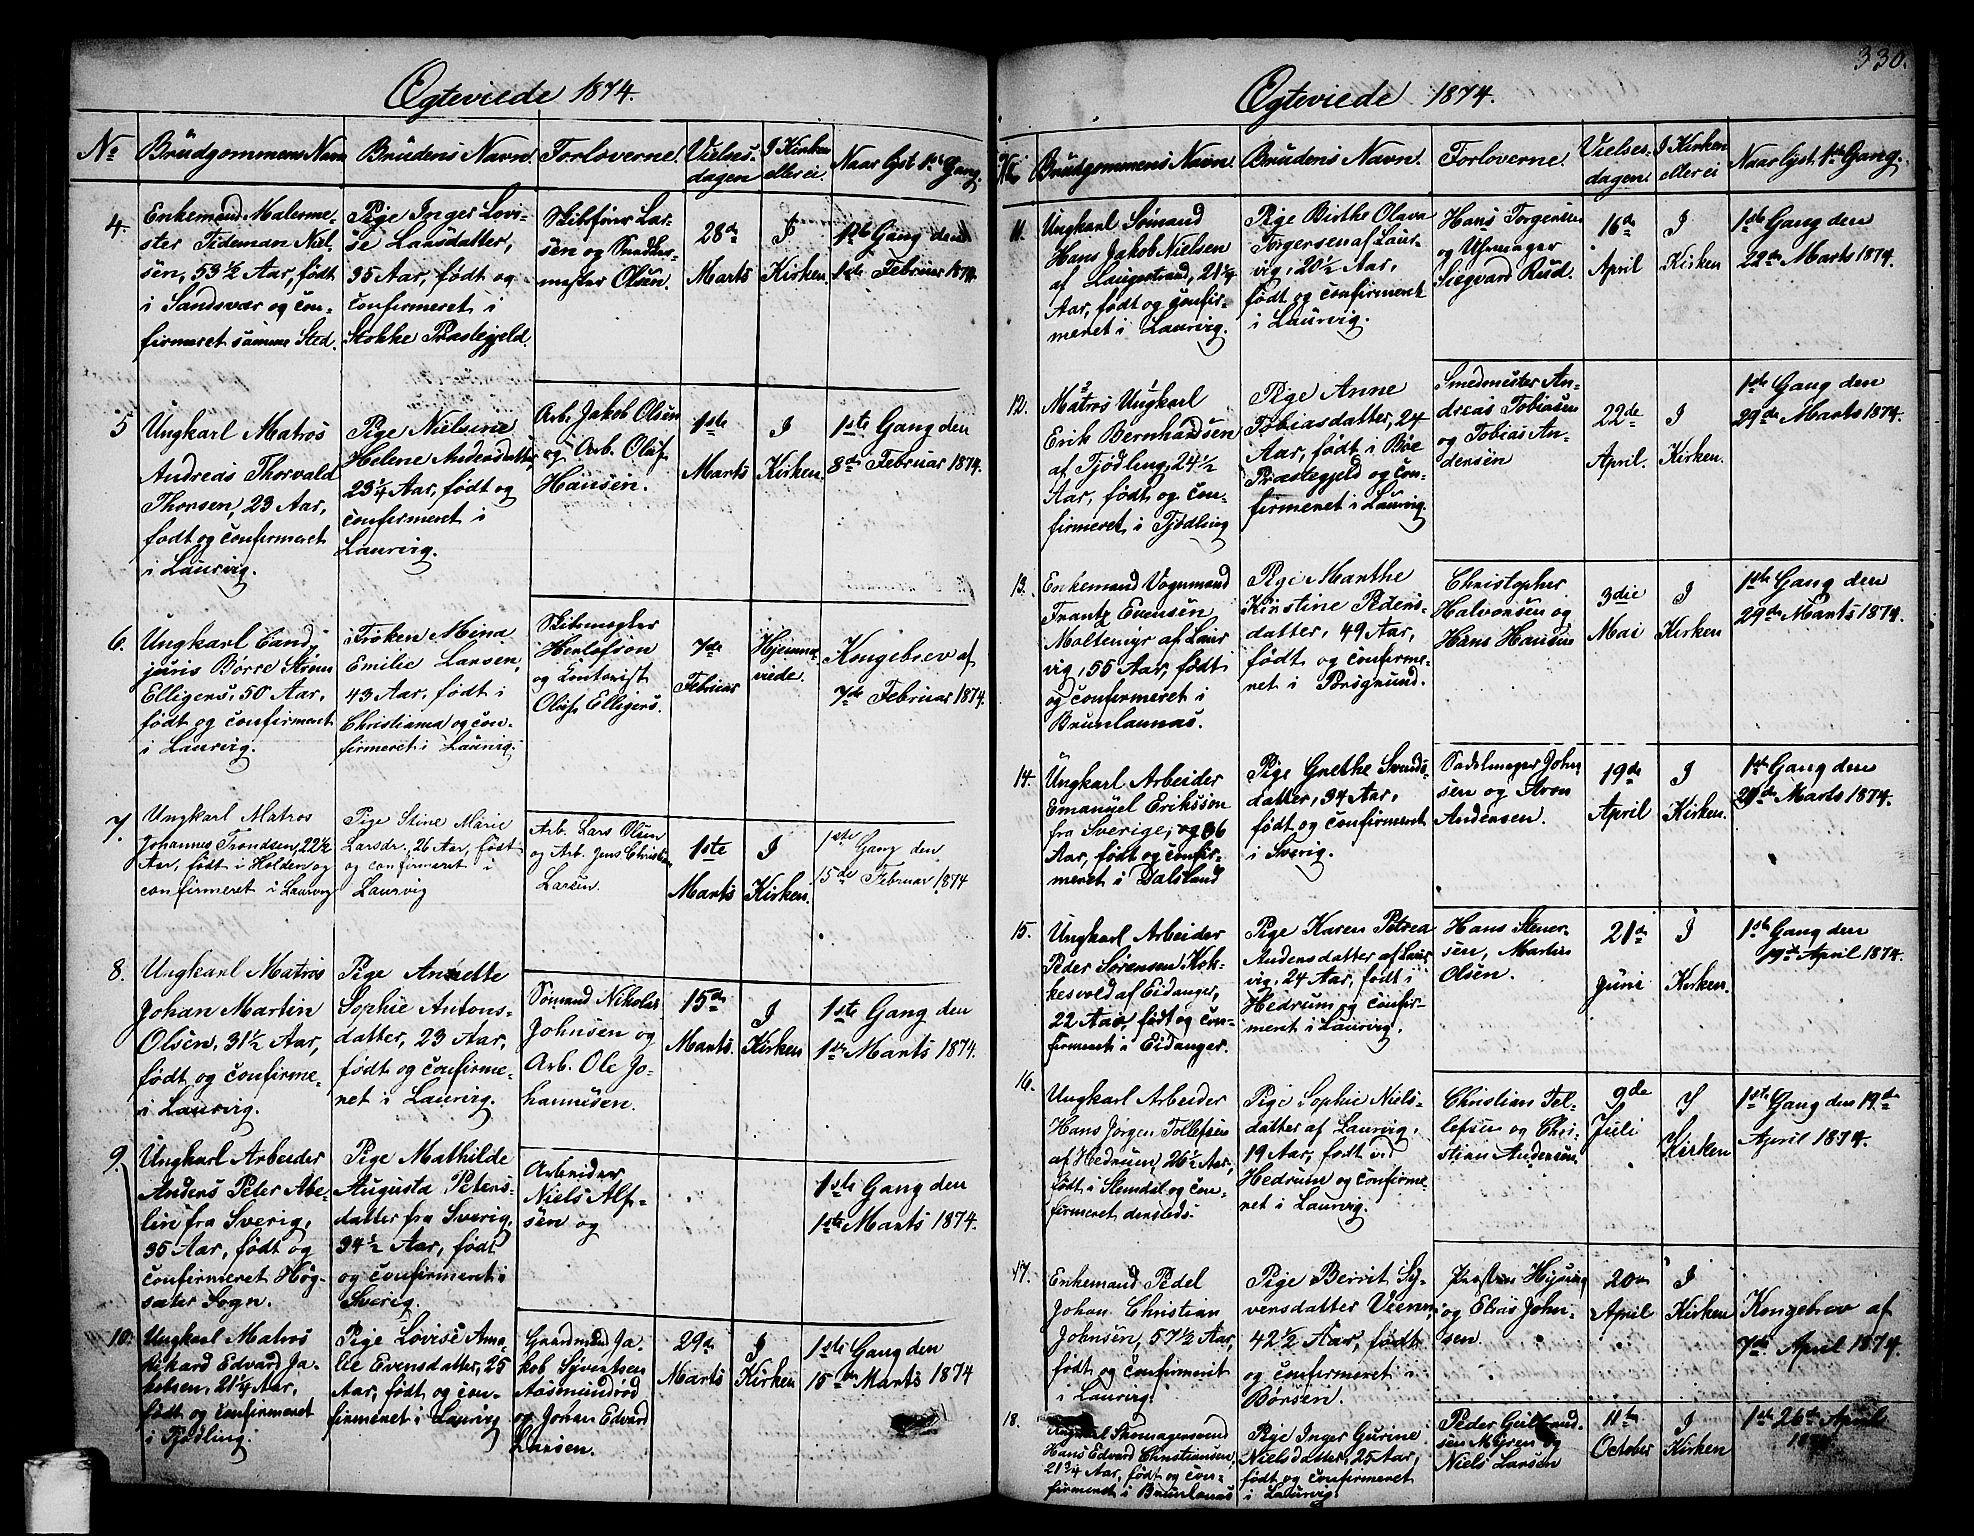 Ægteviede 1874.
No
Brudgommens Navn
Brudens Navn.
Forloverne.
Vielses-
dagen
I Kirken
eller ei.
Naar lyst 1ste Gang.
4.
Enkemand Malerme-
ster Tideman Niel-
sen, 53 1/2 Aar, født
i Sandsvær og con-
firmeret samme Sted.
Pige Inger Lovi-
se Larsdatter,
35 Aar, født og
confirmeret i
Stokke Præstegjeld.
Skibsfører Lar-
sen og Snedker-
mester Olsen.
28de
Marts
I
Kirken.
1ste Gang den
1ste Februar 1874.
5
Ungkarl Matros
Andreas Thorvald
Thorsen, 23 Aar,
født og confirmeret
i Laurvig.
Pige Nielsine
Helene Andersdatter
23 1/4 Aar, født og
confirmeret i
Laurvig.
Arb. Jakob Olsen
og Arb. Oluf
Hansen.
1ste
Marts
I
Kirken.
1ste Gang den
8de Februar 1874.
6.
Ungkarl Cand.
juris Borre Strøm
Elligers, 50 Aar,
født og confirmeret
i Laurvig.
Frøken Mina
Emilie Larsen,
43 Aar, født i
Christiania og con-
firmeret i Laurvig.
Skibsmægler
Henlofson
og
Oluf Elligers.
7de
Februar
Hjemme-
viede.
Kongebrev af
7de Februar 1874.
7.
Ungkarl Matros
Johannes Trondsen, 22 1/2
Aar, født i Holden og
confirmeret i Laurvig
Pige Stine Marie
Larsdr., 26 Aar, født
og confirmeret i
Laurvig
Arb. Lars Olsen
og Arb. Jens Christian
Larsen.
1ste
Marts
I
Kirken.
1ste Gang den
15de Februar 1874
8.
Ungkarl Matros
Johan Martin
Olsen, 31 1/2 Aar,
født og confirme-
i Laurvig.
Pige Annette
Sophie Antons-
datter, 23 Aar,
født og confirme-
ret i Laurvig.
Sømand Nikolai
Johnsen og
Arb. Ole Jo-
hannesen.
15de
Marts.
I
Kirken
1ste Gang den
1ste Marts 1874.
9.
Ungkarl Arbeider
Anders Peter Abe-
lin fra Sverig,
35 Aar, født og
confirmeret Høg-
sæter Sogn.
Pige Mathilde
Augusta Peters-
datter fra Sverig,
34 1/2 Aar, født
og confirmeret i
Sverig.
Arbeider
Niels Alf-
sen og
1ste Gang den
1ste Marts 1874.
10.
Ungkarl Matros
Rikard Edvard Ja-
kobsen, 21 1/4 Aar,
født og confirmeret
i Tjødling.
Pige Lovise Ama-
lie Evensdatter, 25
Aar, født og con-
firmeret i Laurvig
Gaardmand Ja-
kob Syvertsen
Aasmundrød
og Johan Edvard
Larsen.
29de
Marts
I
Kirken
1ste Gang den
15de Marts 1874
330.
Ægteviede 1874.
No
Brudgommens Navn.
Brudens Navn.
Forloverne.
Vielses-
dagen.
I Kirken
eller ei
Naar lyst 1ste Gang.
11.
Ungkarl Sømand
Hans Jakob Nielsen
af Langestrand, 21 1/4
Aar, født og confir-
meret i Laurvig.
Pige Birthe Olava
Torgersen af Laur-
vig, 20 1/2 Aar,
født og confirmeret
i Laurvig.
Hans Torgersen
og Uhrmager
Siegvard Rud.
16de
April
I
Kirken
1ste Gang den
22de Marts 1874.
12.
Matros Ungkarl
Erik Bernhardsen
af Tjødling, 24 1/2
Aar, født og con-
firmeret i Tjødling
Pige Anne
Tobiasdatter, 24
Aar, født i Bøe
Præstegjeld og con-
firmeret i Laurvig.
Smedmester An-
dreas Tobiasen
og Tobias An-
dersen
22de
April.
I
Kirken.
1ste Gang den
29de Marts 1874.
13.
Enkemand Vognmand
Frantz Evensen
Moltemyr af Laur
vig, 55 Aar, født
og confirmeret i
Brunlaunæs.
Pige Marthe
Kirstine Peders-
datter, 49 Aar,
født og confirme-
ret i Porsgrund.
Christopher
Halvorsen og
Hans Hansen
3die
Mai
I
Kirken
1ste Gang den
29de Marts 1874.
14.
Ungkarl Arbeider
Emanuel Eriksson
fra Sverige, og 36
Aar, født og confir-
meret i Dalsland
Pige Grethe Svends-
datter, 34 Aar,
født og confirmeret
i Sverig.
Sadelmager John-
sen og Aron
Andersen.
19de
April
I
Kirken.
1ste Gang den
29de Marts 1874.
15.
Ungkarl Arbeider
Peder Sørensen Kok-
kesvold af Eidanger,
22 Aar, født og con-
firmeret i Eidanger.
Pige Karen Petrea
Andersdatter af Laur
vig, 24 Aar, født i
Hedrum og confir-
meret i Laurvig.
Hans Stener-
sen, Martin
Olsen.
21de
Juni
I
Kirken.
1ste Gang den
19de April 1874.
16.
Ungkarl Arbeider
Hans Jørgen Tollefsen
af Hedrum, 26 1/2 Aar,
født i Slemdal og con-
firmeret dersteds.
Pige Sophie Niels-
datter af Laurvig,
19 Aar, født ved
Hedrum og confirme-
ret i Laurvig.
Christian Tol-
lefsen og Chri-
stian Andersen
9de
Juli
I
Kirken
1ste Gang den 19de
April 1874.
17.
Enkemand Pedel
Johan Christian
Johnsen, 57 1/2 Aar,
født og confirmeret
i Laurvig.
Pige Berrit Sy-
versdatter
42 1/2 Aar, født
og confirmeret i
Børsen.
og Elias John-
sen.
20de
April
I
Kirken
Kongebrev af
7de April 1874.
18.
Ungkarl Skomagersvend
Hans Edvard Christiansen,
21 3/4 Aar, født og con-
firmeret i Brunlanæs
Pige Inger Gurine
Nielsdatter, 25 Aar,
født og confirmeret
i Laurvig.
Peder Gulbrand-
sen Myren og
Niels Larsen
11te
October
I
Kirken
1ste 26de April
1874.